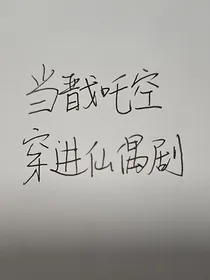 当戬吒空
穿进仙偶剧